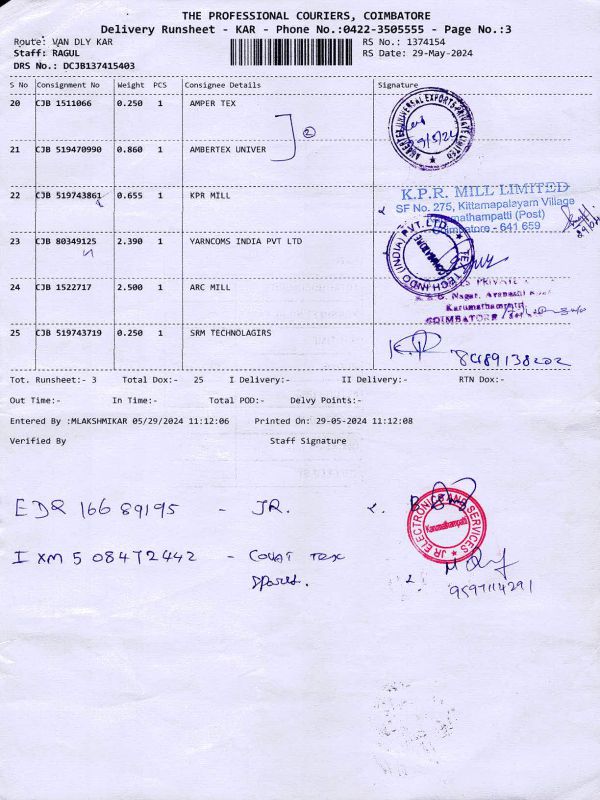 THE PROFESSIONAL COURIERS, COIMBATORE
Delivery Runsheet - KAR - Phone No.:0422-3505555 - Page No.:3
Route: VAN DLY KAR RS No.: 1374154
Staff: RAGUL RS Date: 29-May-2024
DRS No.: DCJB137415403
S No Consignment No Weight PCS Consignee Details Signature
20 CJB 1511066 0.250 1 AMPER TEX
21 CJB 519470990 0.860 1 AMBERTEX UNIVER
2
29/5/24
22 CJB 519743861 0.655 1 KPR MILL
K.P.R. MILL LIMITED
SF No. 275, Kittampalayam Village
Karumathampatti (Post)
Coimbatore - 641 659
23 CJB 80349125 2.390 1 YARNCOMS INDIA PVT LTD
24 CJB 1522717 2.500 1 ARC MILL
Karumathampatti
COIMBATORE
25 CJB 519743719 0.250 1 SRM TECHNOLAGIRS
8489138202
Tot. Runsheet:- 3 Total Dox:- 25 I Delivery:- II Delivery:- RTN Dox:-
Out Time:- In Time:- Total POD:- Delvy Points:-
Entered By :MLAKSHMIKAR 05/29/2024 11:12:06 Printed On: 29-05-2024 11:12:08
Verified By Staff Signature
EDR 16689195 - JR.
JR ELECTRONICS AND SERVICES
Karumathampatti
IXM 508472442 -
9597114291